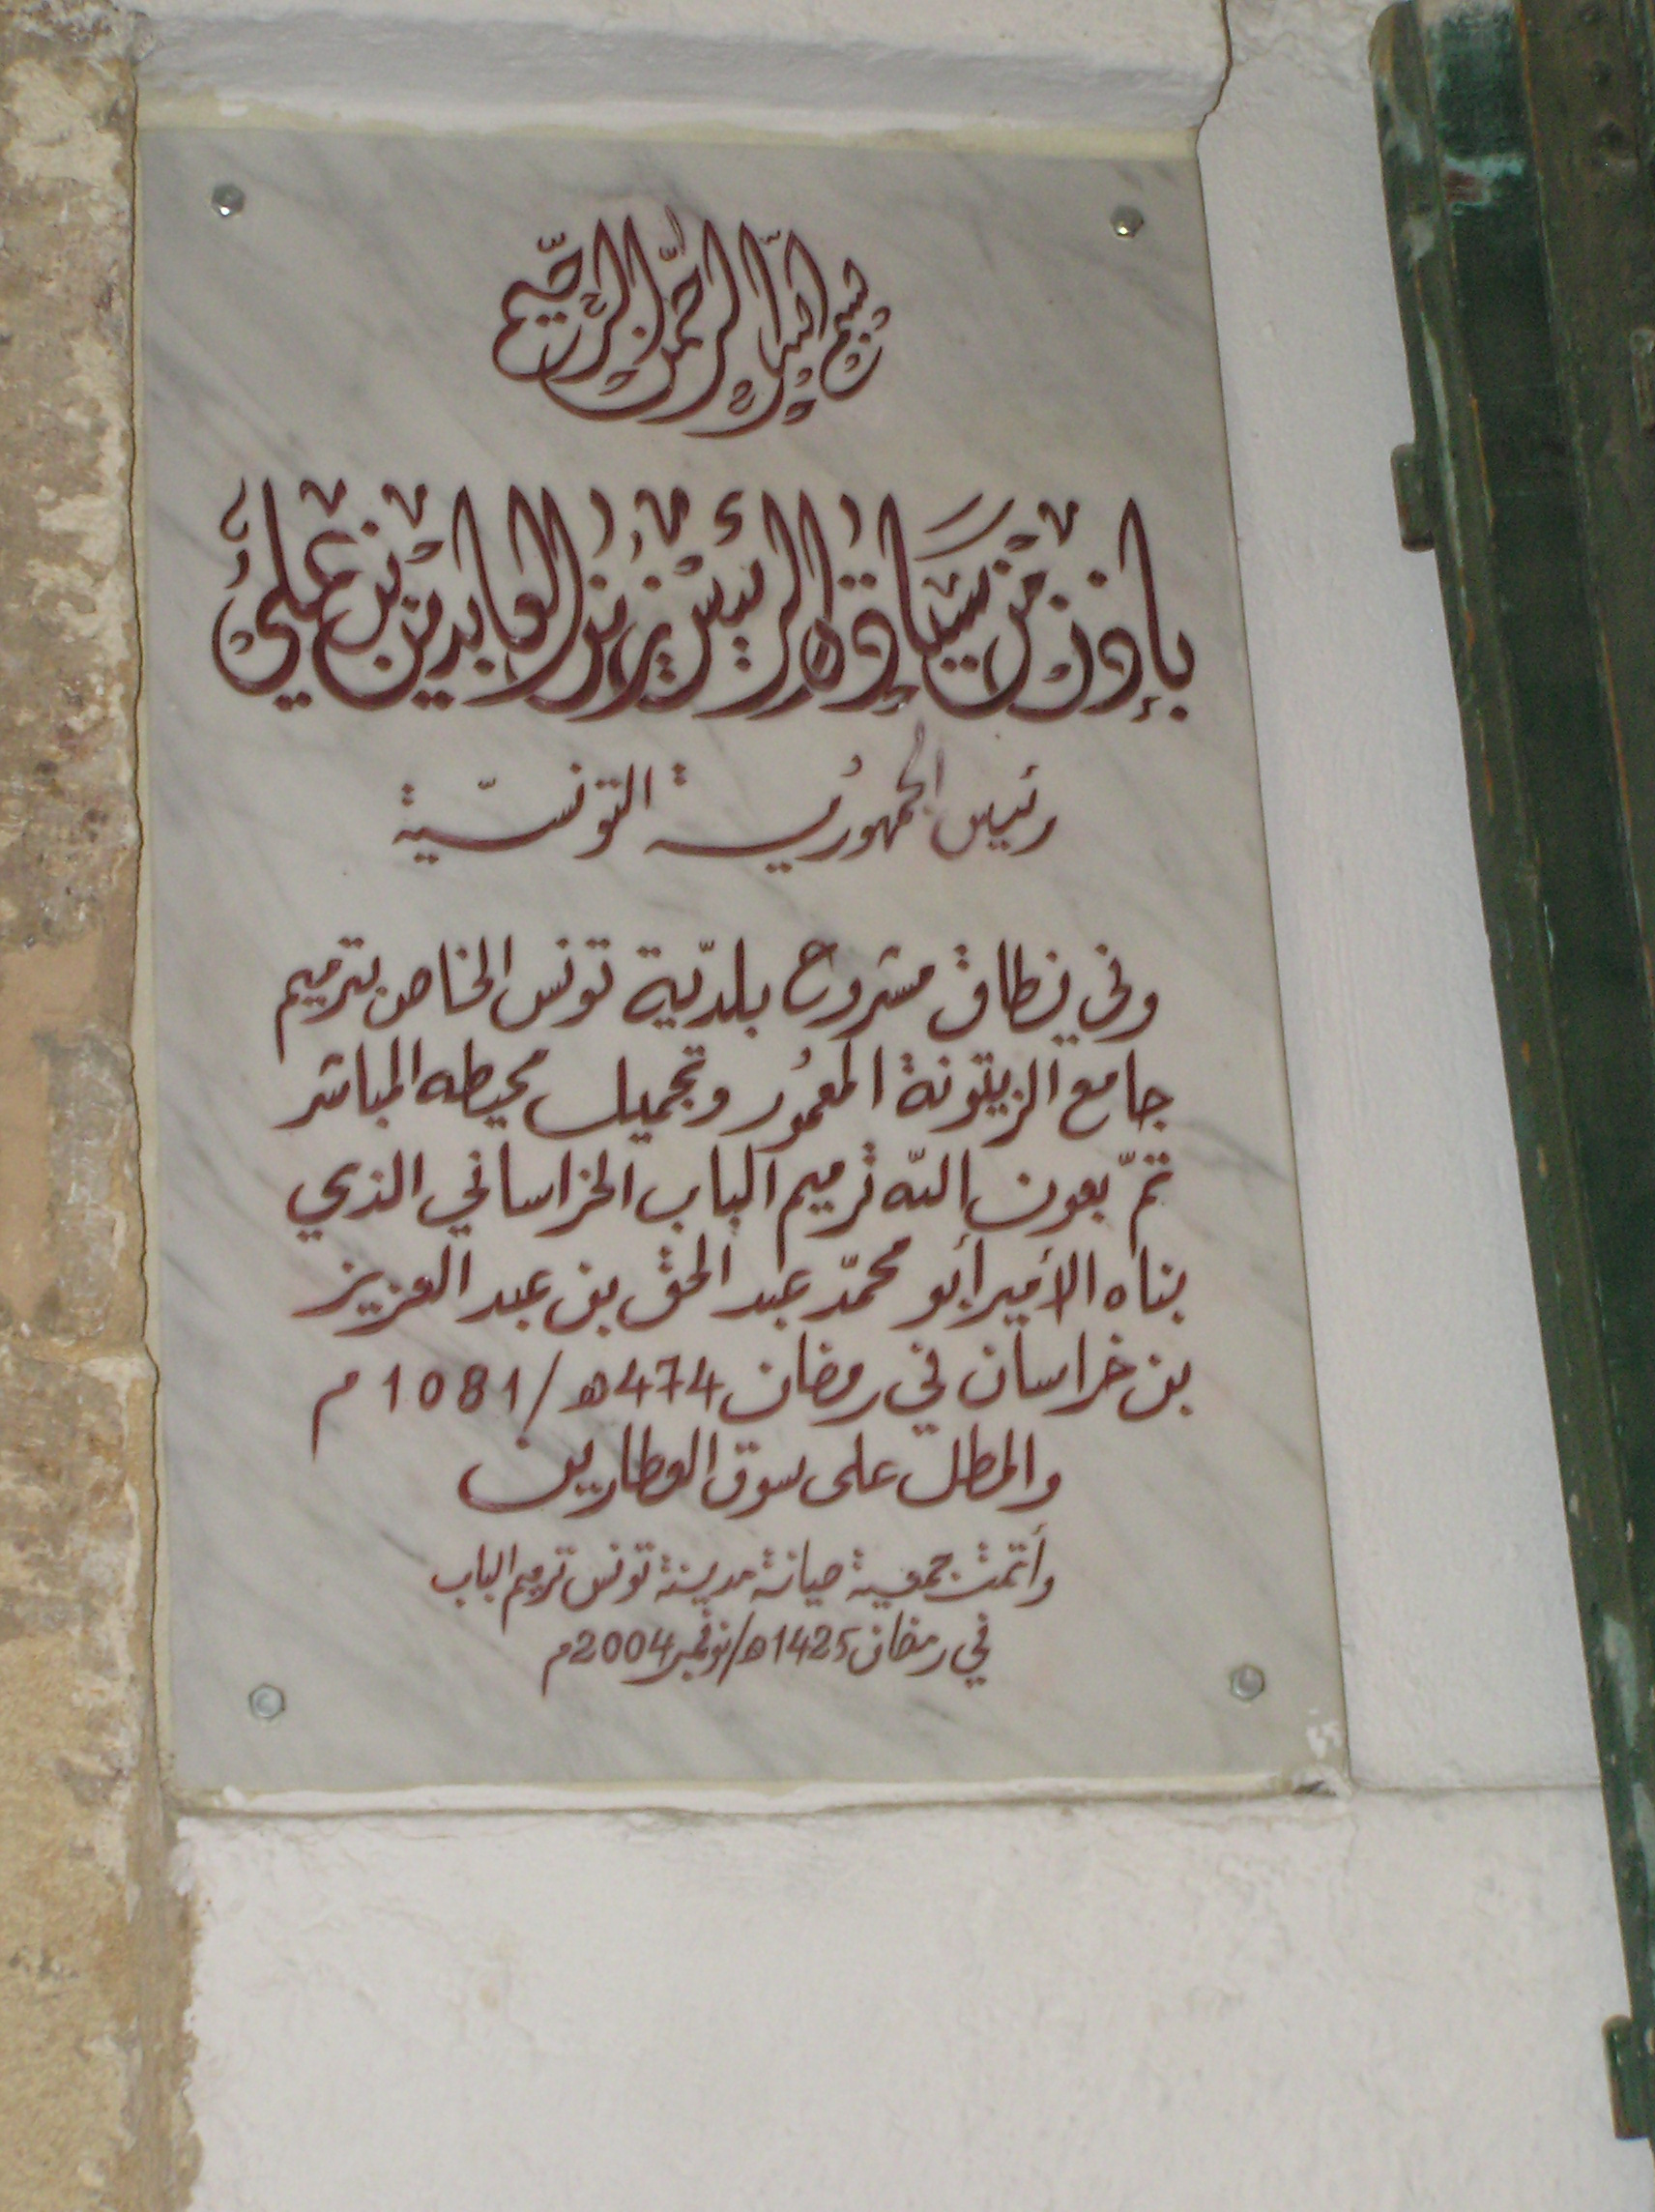 بسم الله الرحمن الرحيم
بإذن من سيادة الرئيس زين العابدين بن علي
رئيس الجمهورية التونسيّة
وفي نطاق مشروع بلديّة تونس الخاص بترميم
جامع الزيتونة المعمُور وتجميل محيطه المباشر
تمّ بعون الله ترميم الباب الخراساني الذي
بناه الأمير أبو محمّد عبد الحق بن عبد العزيز
بن خراسان في رمضان 474هـ/1081م
والمطل على سوق العطارين
وأتمت جمعية صيانة مدينة تونس ترميم الباب
في رمضان 1425هـ/نوفمبر 2004م